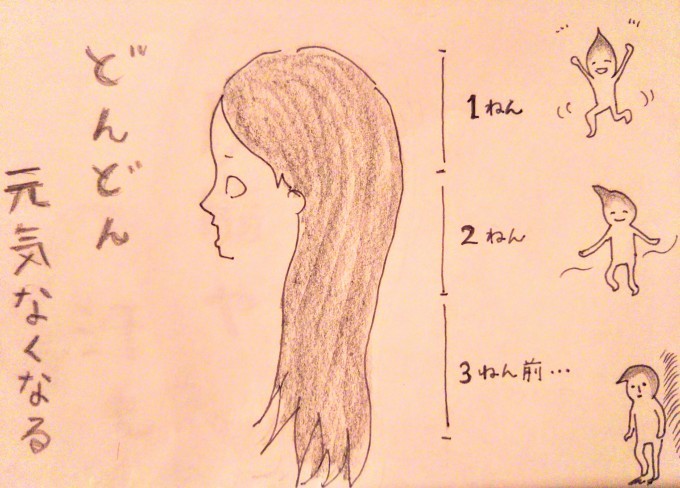 どんどん
元気なくなる
1ねん
2ねん
3ねん前…